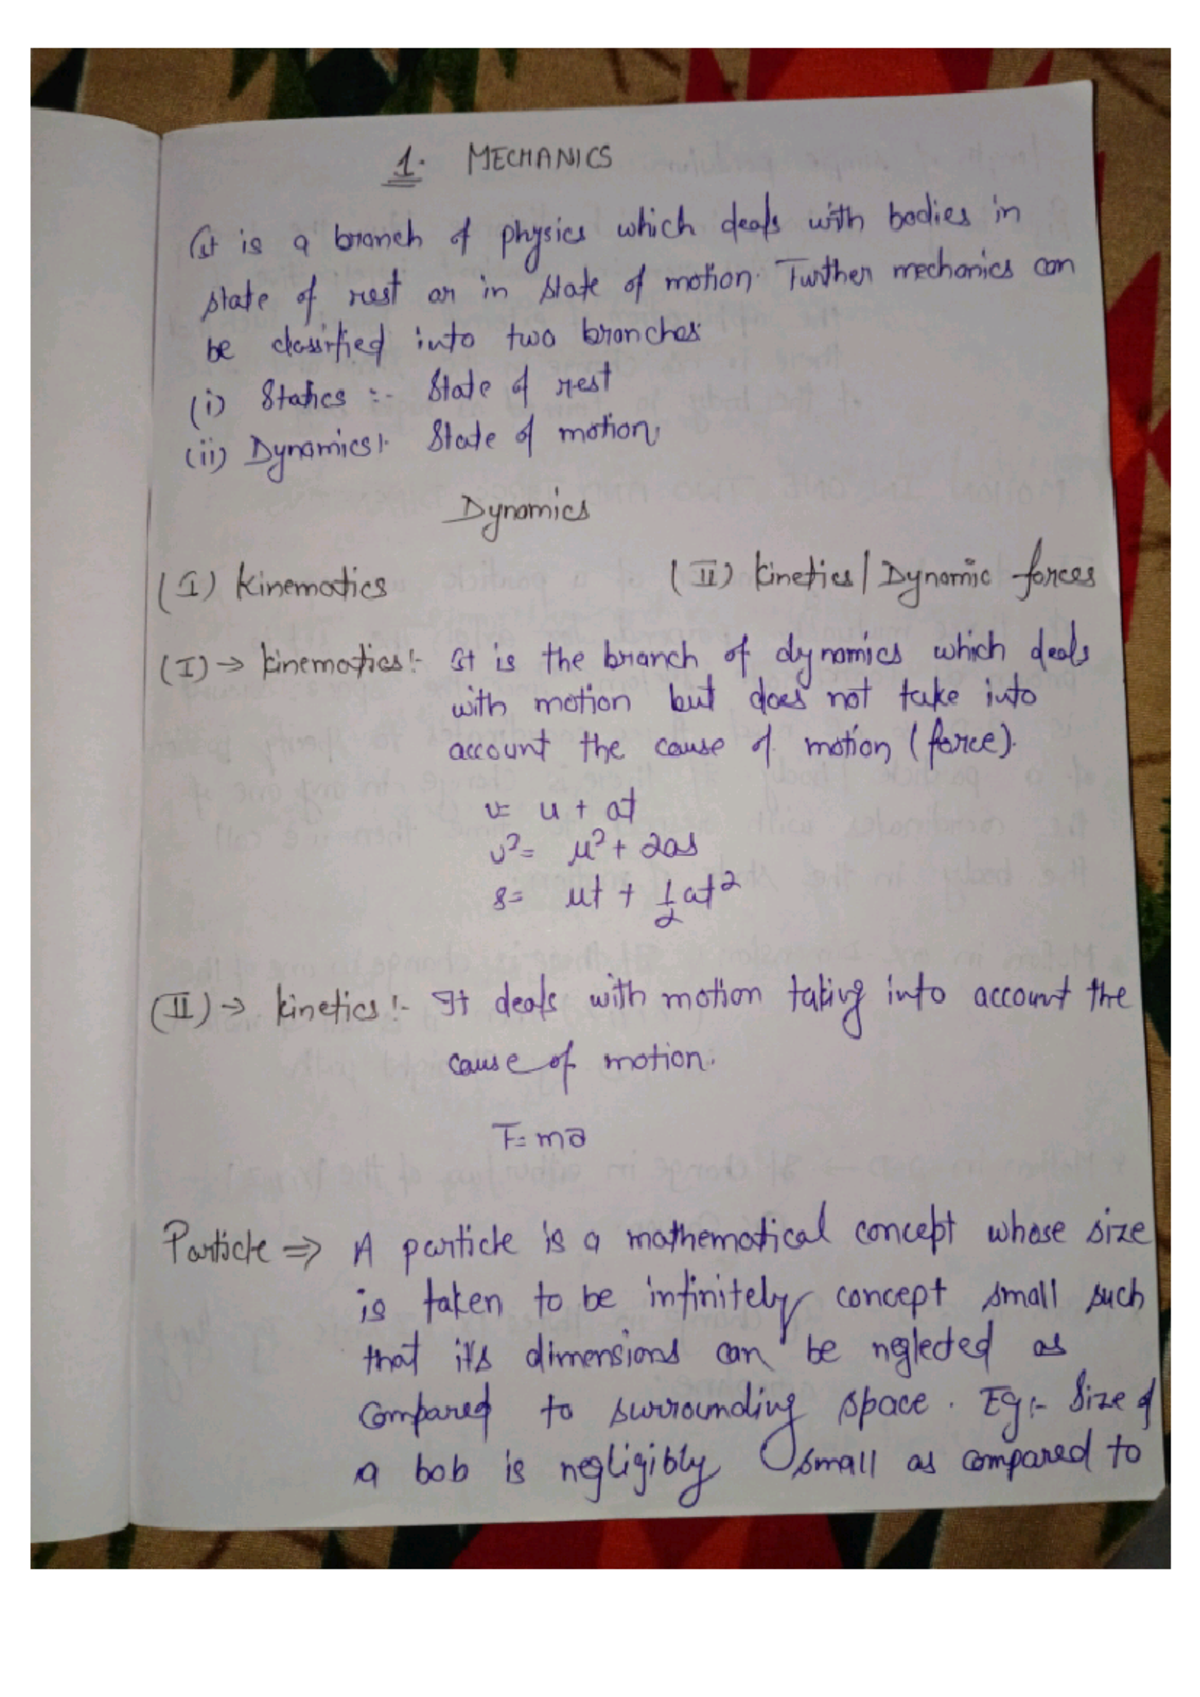 1. MECHANICS
It is a branch of physics which deals with bodies in
state of rest or in state of motion. Further mechanics can
be classified into two branches
(i) Statics :- State of rest
(ii) Dynamics :- State of motion.
Dynamics
(I) Kinematics (II) Kinetics / Dynamic forces
(I) → Kinematics :- It is the branch of dynamics which deals
with motion but does not take into
account the cause of motion (force).
v = u + at
v² = u² + 2as
s = ut + 1/2 at²
(II) → Kinetics :- It deals with motion taking into account the
cause of motion.
F = ma
Particle ⇒ A particle is a mathematical concept whose size
is taken to be infinitely concept small such
that it's dimensions can be neglected as
compared to surrounding space. Eg :- Size of
a bob is negligibly small as compared to